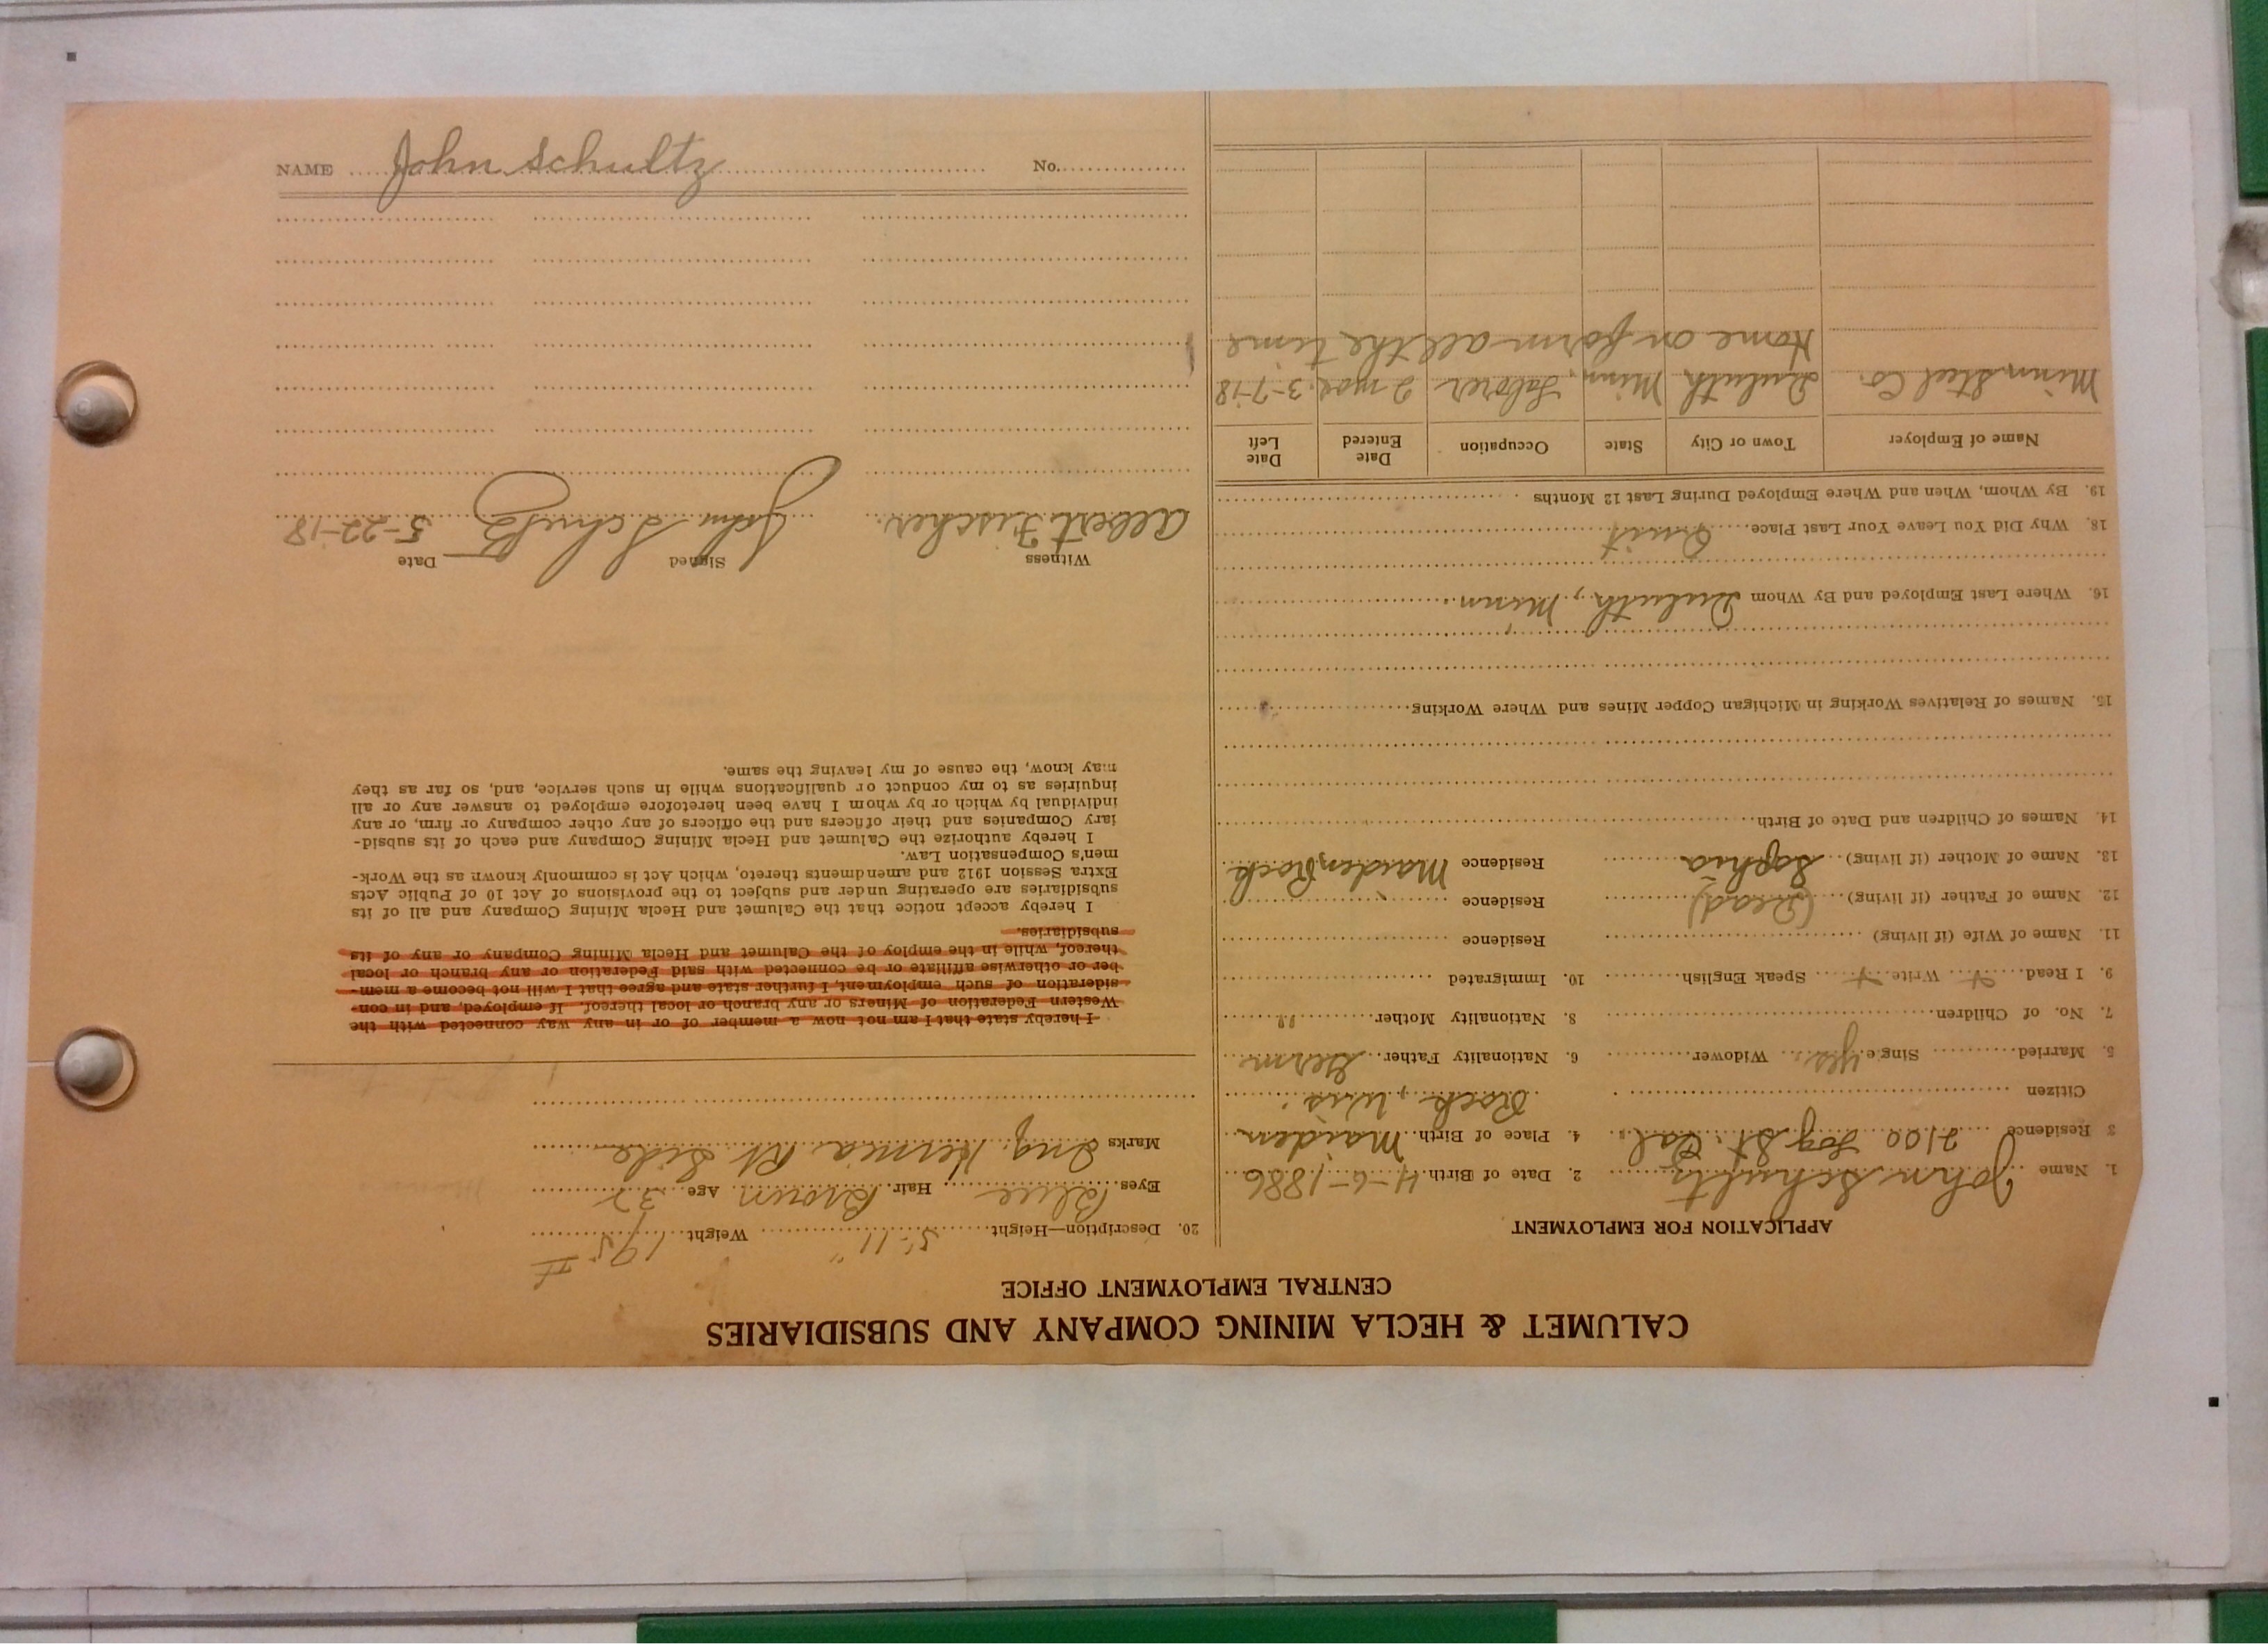 CALUMET & HECLA MINING COMPANY AND SUBSIDIARIES
CENTRAL EMPLOYMENT OFFICE
APPLICATION FOR EMPLOYMENT
1. Name John Schultz 2. Date of Birth 4-6-1886
3 Residence 2100 Log St. Cal. 4. Place of Birth Maiden
Citizen Rock, Wis.
5. Married Single yes Widower 6. Nationality Father Germ
7. No. of Children 8. Nationality Mother "
9. I Read Write Speak English 10. Immigrated
11. Name of Wife (if living) Residence
12. Name of Father (if living) (Dead) Residence
13. Name of Mother (if living) Sophia Residence Maiden Rock
14. Names of Children and Date of Birth
15. Names of Relatives Working in Michigan Copper Mines and Where Working
16. Where Last Employed and By Whom Duluth, Minn.
18. Why Did You Leave Your Last Place Quit
19. By Whom, When and Where Employed During Last 12 Months
Name of Employer Town or City State Occupation Date Entered Date Left
Minn Steel Co. Duluth Minn. Laborer 2 mos. 3-7-18
Home on form all the time
20. Description—Height 5'-11" Weight 195 #
Eyes Blue Hair Brown Age 32
Marks Ing. Hernia Rt. Side
I hereby state that I am not now a member of or in any way connected with the
Western Federation of Miners or any branch or local thereof. If employed, and in con-
sideration of such employment, I further state and agree that I will not become a mem-
ber or otherwise affiliate or be connected with said Federation or any branch or local
thereof, while in the employ of the Calumet and Hecla Mining Company or any of its
subsidiaries.
I hereby accept notice that the Calumet and Hecla Mining Company and all of its
subsidiaries are operating under and subject to the provisions of Act 10 of Public Acts
Extra Session 1912 and amendments thereto, which Act is commonly known as the Work-
men's Compensation Law.
I hereby authorize the Calumet and Hecla Mining Company and each of its subsid-
iary Companies and their officers and the officers of any other company or firm, or any
individual by which or by whom I have been heretofore employed to answer any or all
inquiries as to my conduct or qualifications while in such service, and, so far as they
may know, the cause of my leaving the same.
Witness Signed Date
Albert Fischer. John Schultz 5-22-18
NAME John Schultz No.